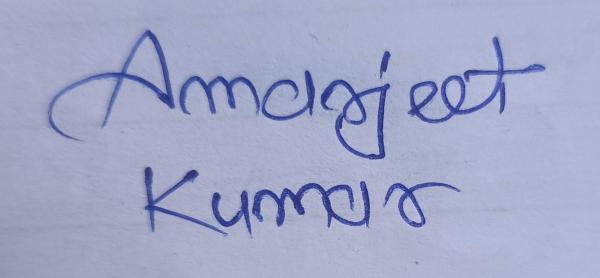 Amarjeet
Kumar